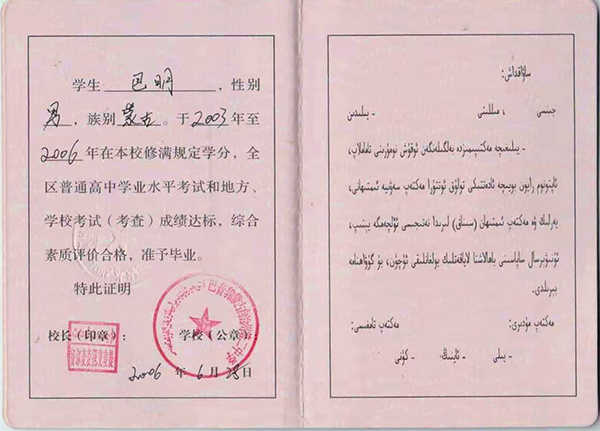 学生 巴明 ，性别
男，族别蒙古。于2003年至
2006年在本校修满规定学分，全
区普通高中学业水平考试和地方、
学校考试（考查）成绩达标，综合
素质评价合格，准予毕业。
特此证明
校长（印章）： 学校（公章）：
2006 年 6 月 28日
ساۋاقداش:
جىنسى ، مىللىتى . يىلىدىن
- يىلىغىچە مەكتىپىمىزدە بەلگىلەنگەن ئوقۇش نومۇرىنى تاماملاپ،
ئاپتونوم رايون بويىچە ئادەتتىكى تولۇق ئوتتۇرا مەكتەپ سەۋىيە ئىمتىھانى،
يەرلىك ۋە مەكتەپ ئىمتىھان (سىناق) لىرىدا نەتىجىسى ئۆلچەمگە يېتىپ،
ئۇنىۋېرسال ساپاسىنى باھالاشتا لاياقەتلىك بولغانلىقى ئۈچۈن، بۇ گۇۋاھنامە
بېرىلدى.
مەكتەپ مۇدىرى: مەكتەپ تامغىسى:
- يىلى - ئاينىڭ - كۈنى